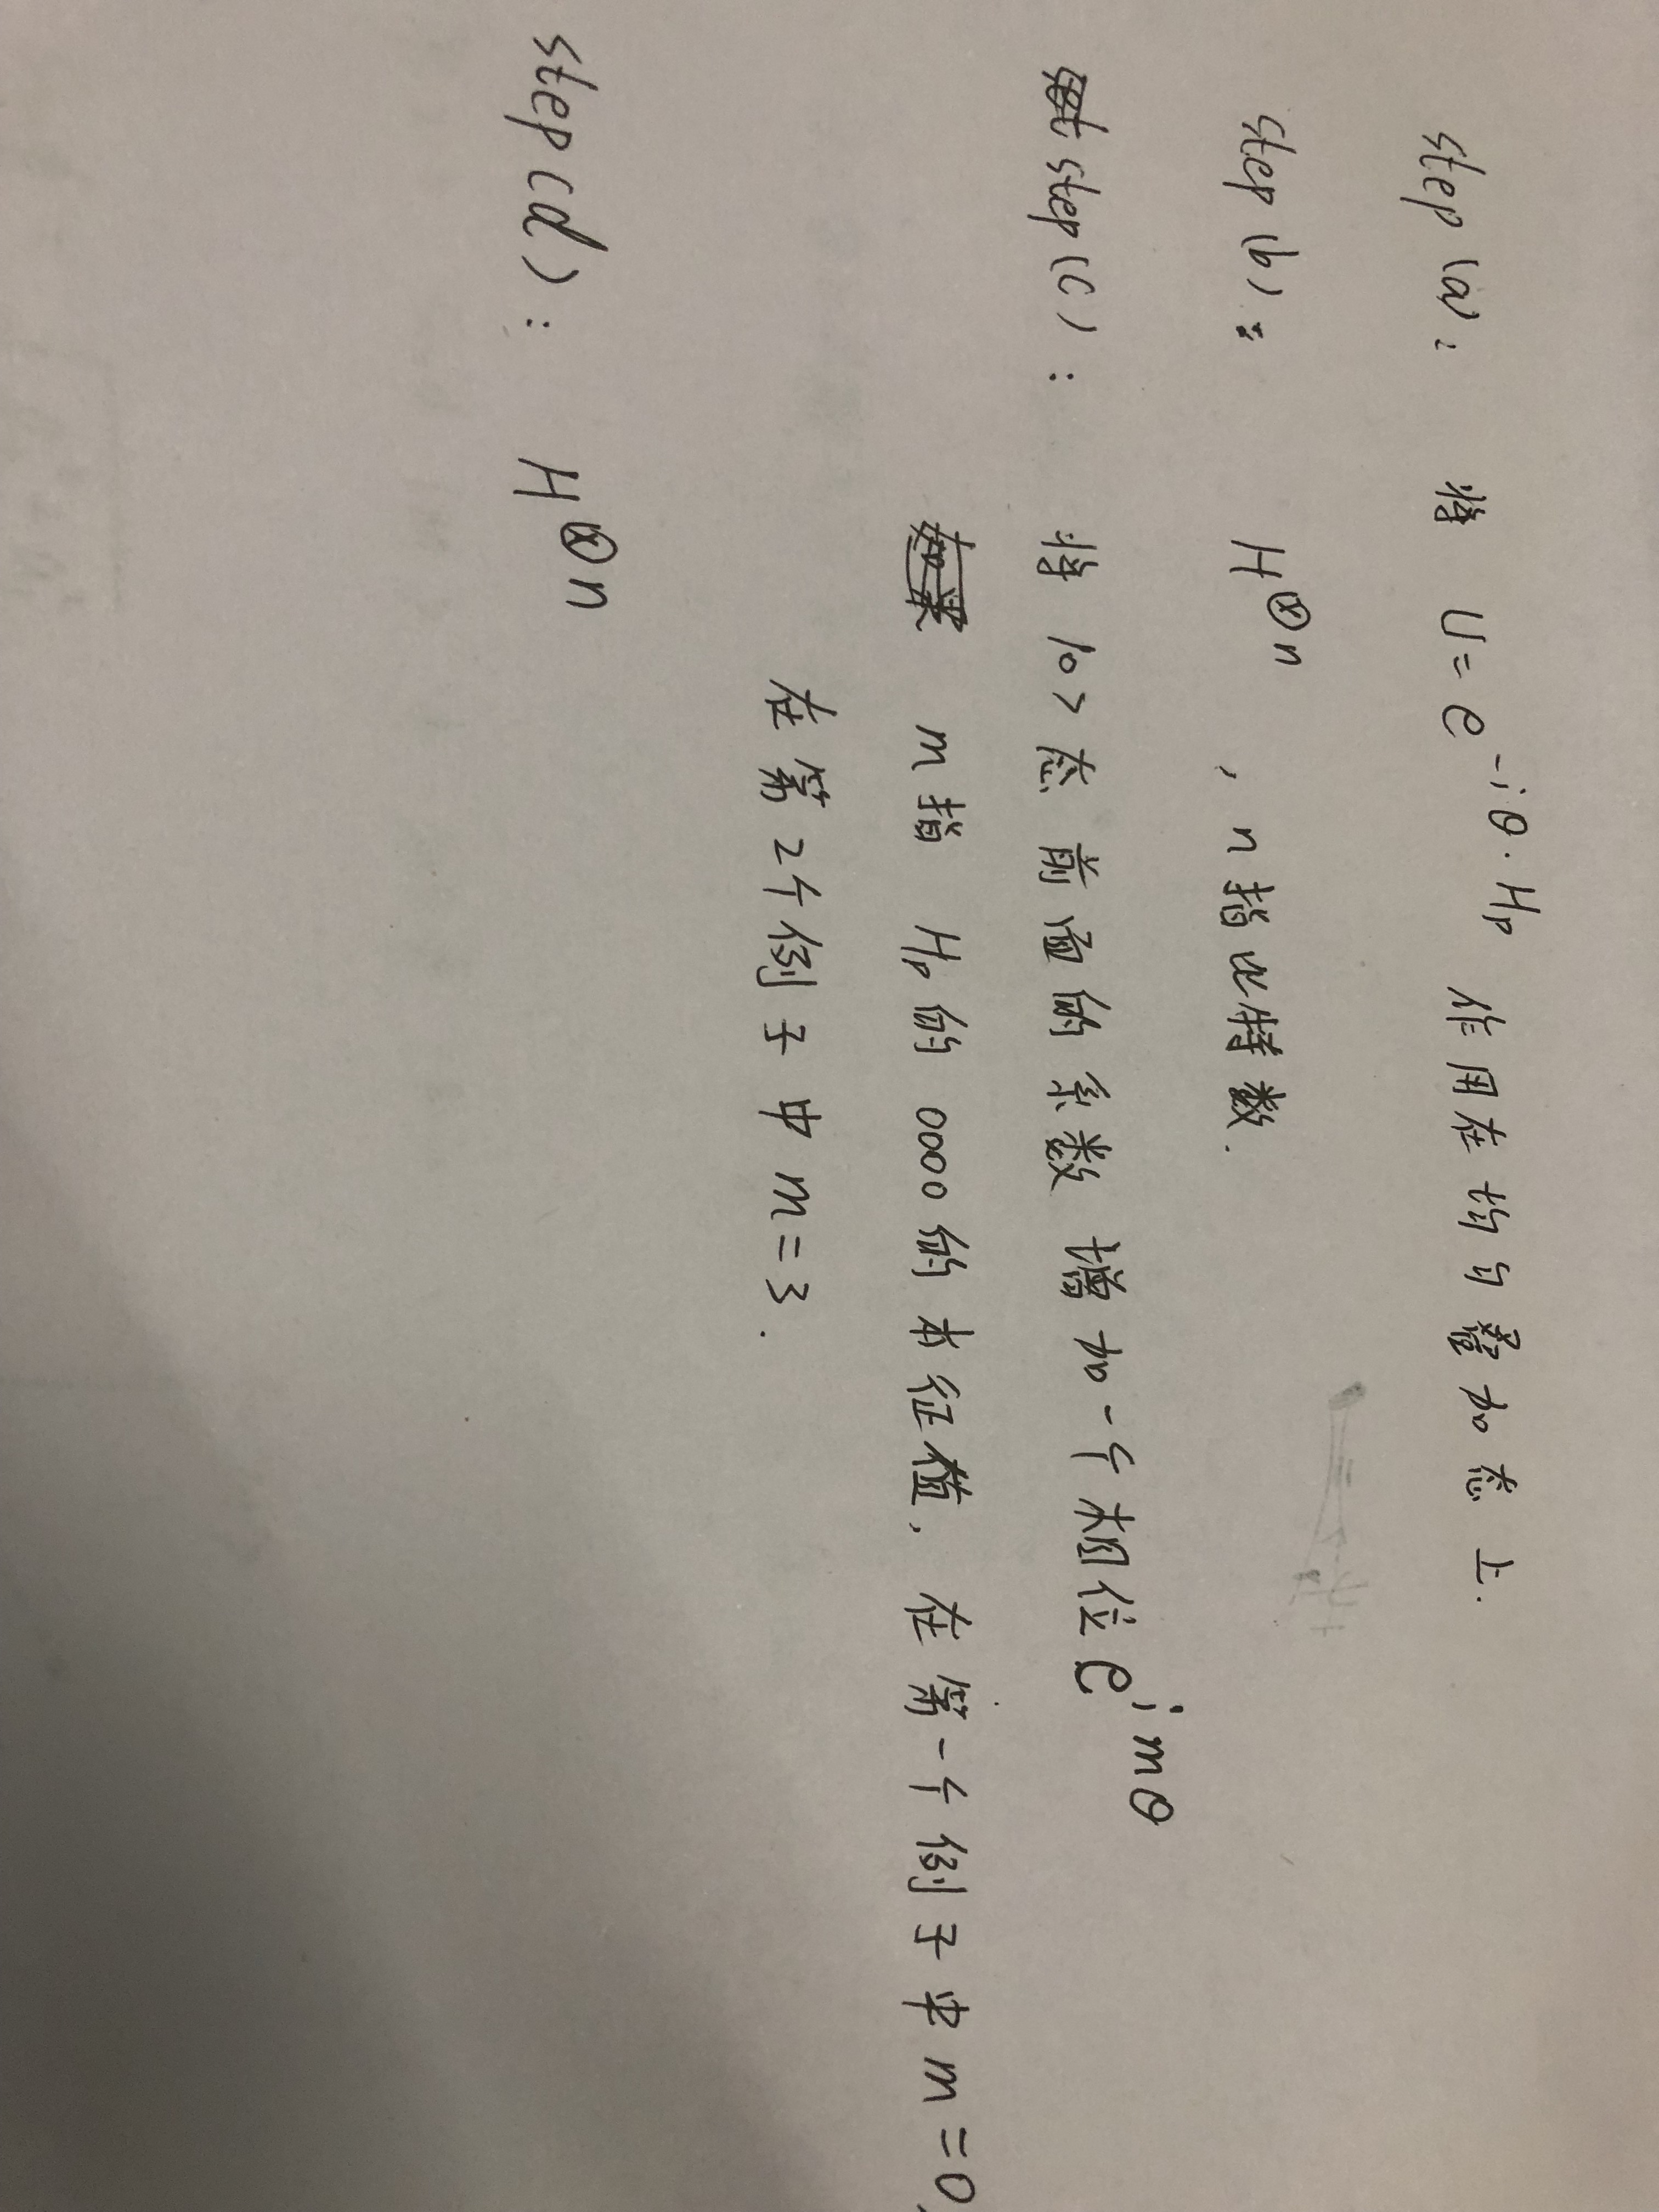 step (a): 将 U = e^{-iθ·Hp} 作用在均匀叠加态上.
step (b): H^{⊗n} , n指比特数.
step (c): 将 |0> 态前面的系数增加一个相位 e^{imθ}
m指 Hp的 0000的本征值, 在第一个例子中 m=0,
在第2个例子中 m=3.
step (d): H^{⊗n}